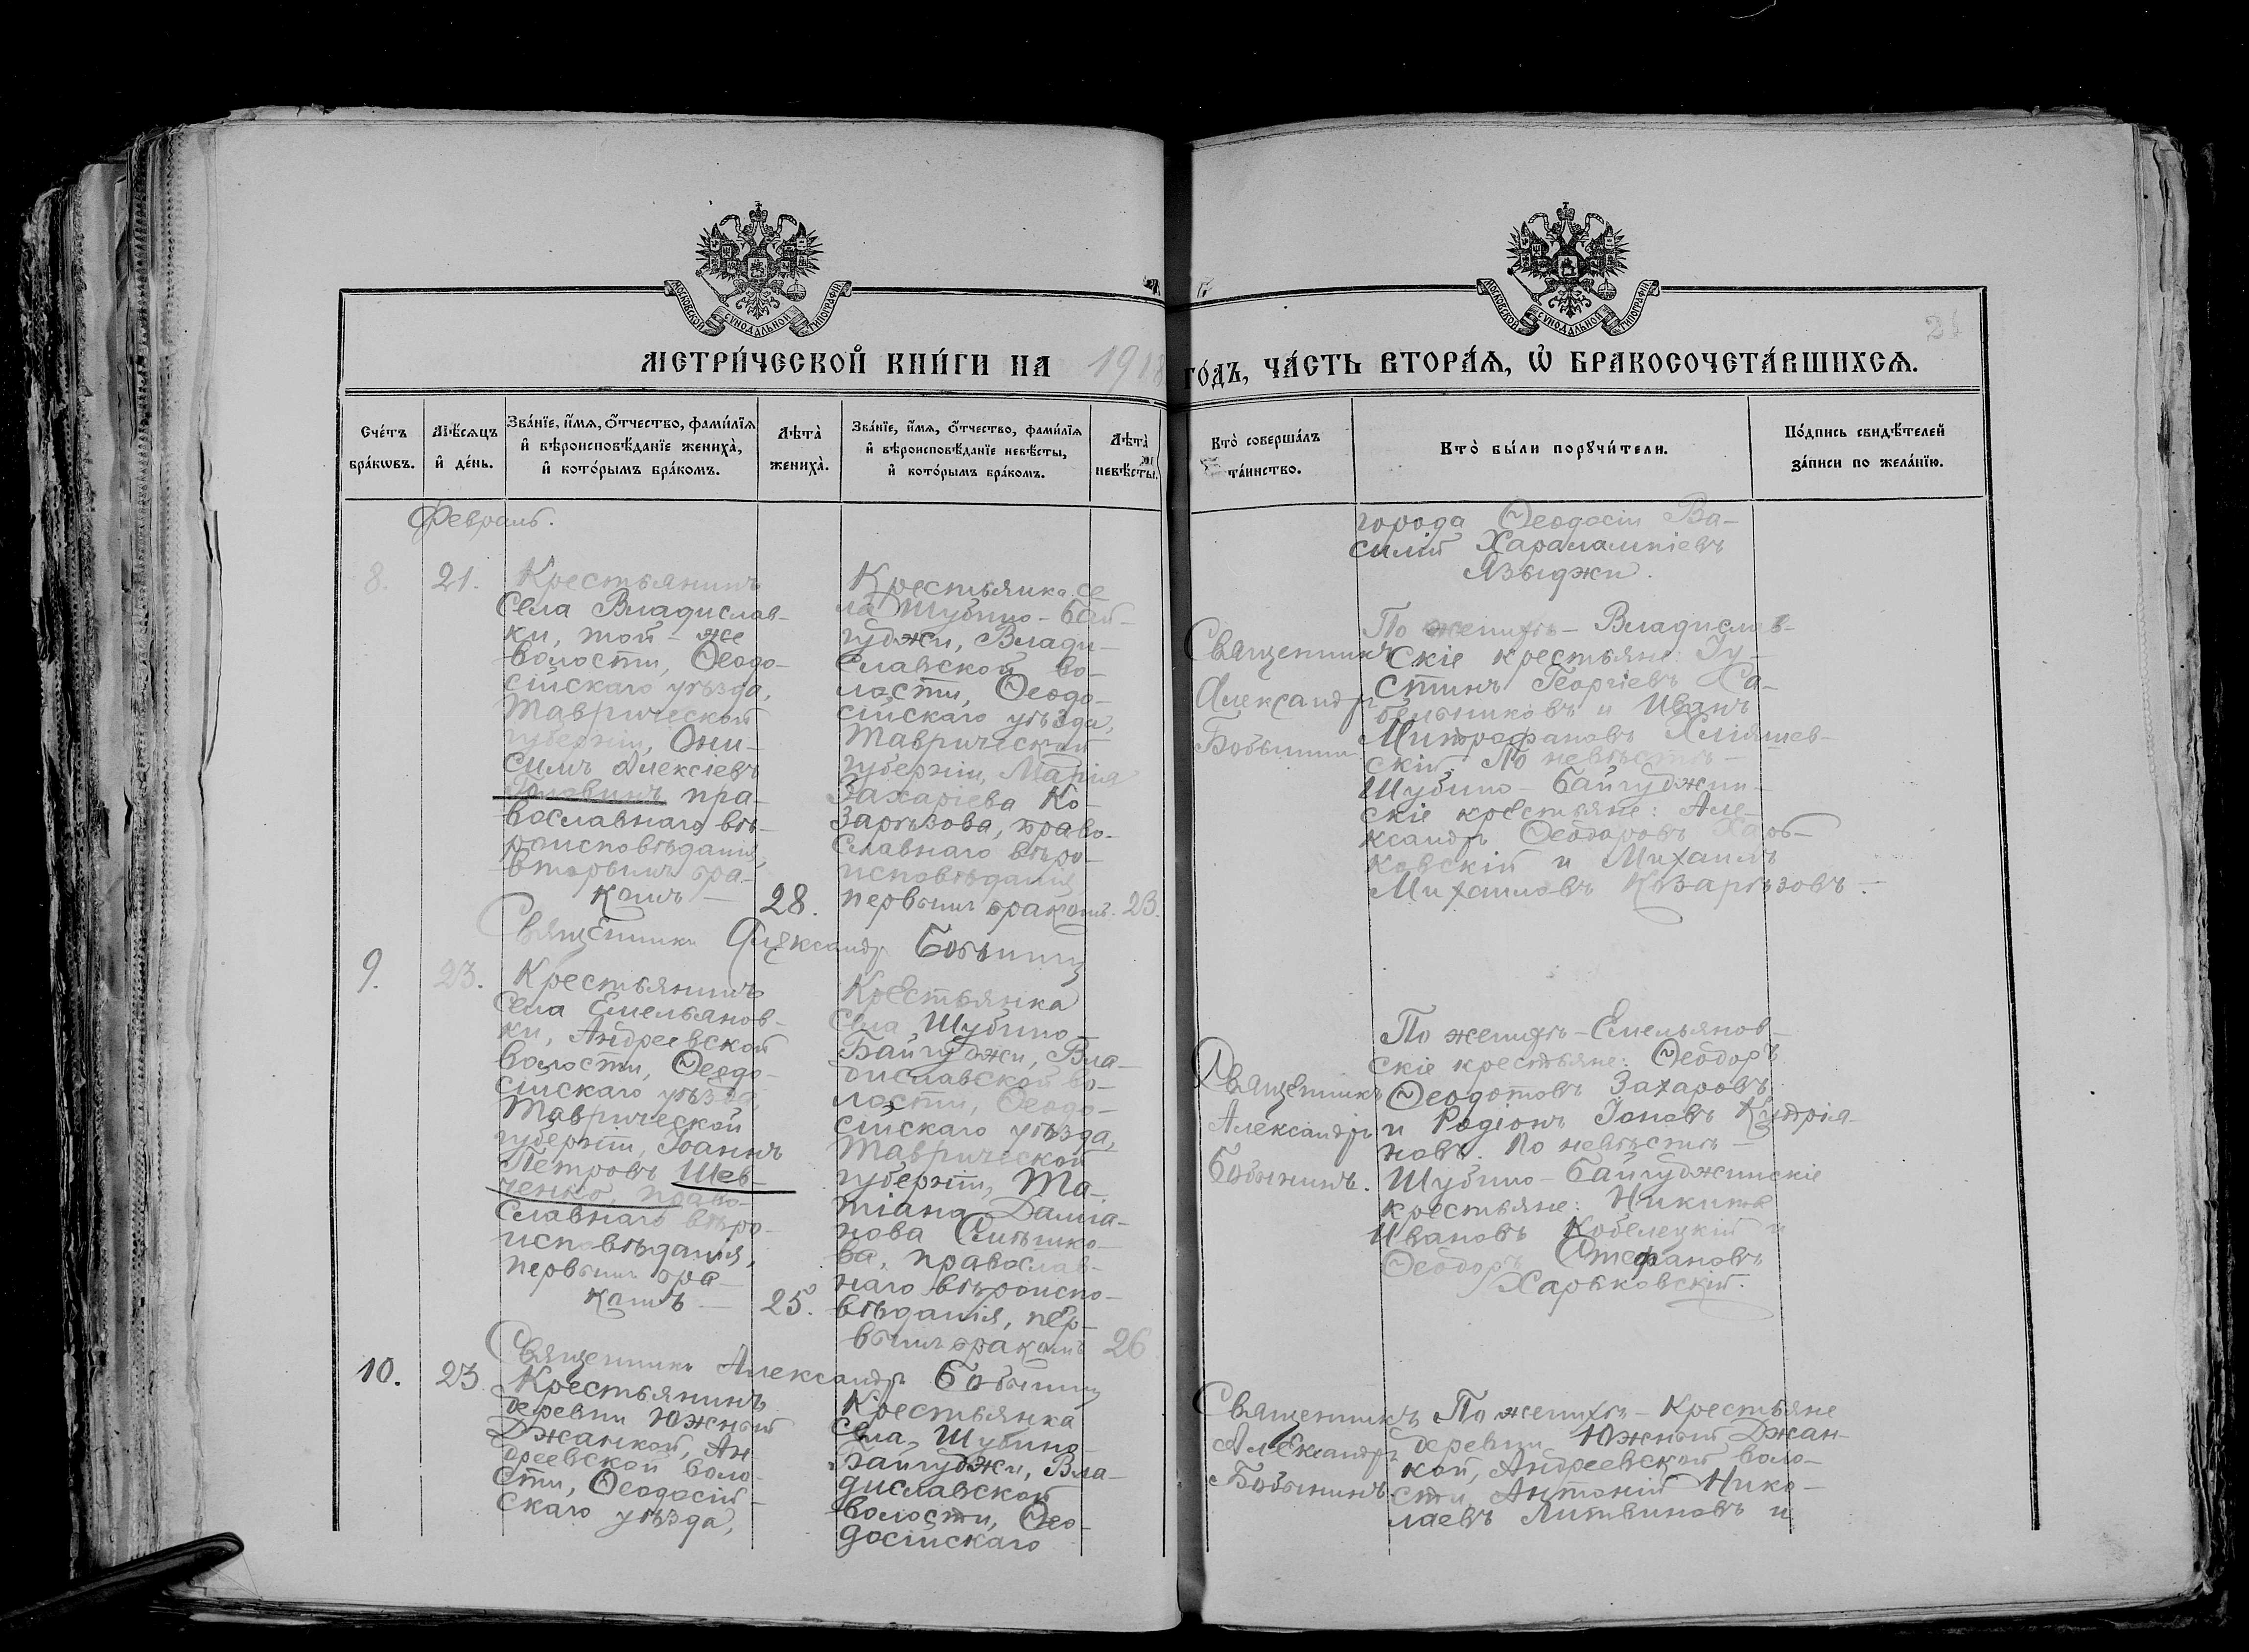 МОСКОВСКОЙ СѴНОДАЛЬНОЙ ТИПОГРАФІИ
МОСКОВСКОЙ СѴНОДАЛЬНОЙ ТИПОГРАФІИ
МЕТРИ́ЧЕСКОЙ КНИ́ГИ НА 1918 ГО́ДЪ, ЧА́СТЬ ВТОРА́Я, Ѽ БРАКОСОЧЕТА́ВШИХСЯ.
Сче́тъ
бра́кѡвъ.
Мѣ́сяцъ
и҆ де́нь.
Зва́нїе, и҆́мя, ѻ҆́тчество, фами́лїя
и҆ вѣроисповѣ́данїе жениха̀,
и҆ кото́рымъ бра́комъ.
Лѣта̀
жениха̀.
Зва́нїе, и҆́мя, ѻ҆́тчество, фами́лїя
и҆ вѣроисповѣ́данїе невѣ́сты,
и҆ кото́рымъ бра́комъ.
Лѣта̀
невѣ́сты.
Кто̀ соверша́лъ
та́инство.
Кто̀ бы́ли порꙋчи́тели.
По́дпись свидѣ́телей
за́писи по жела́нїю.
Февраль.
8.
21.
Крестьянинъ
села Владислав-
ки, той-же
волости, Ѳеодо-
сійскаго уѣзда,
Таврической
губерніи, Они-
симъ Алексіевъ
Головинъ пра-
вославнаго вѣ-
роисповѣданія,
вторымъ бра-
комъ — 28.
Крестьянка се
ла Шубино-Бай-
гуджи, Влади-
славской во-
лости, Ѳеодо-
сійскаго уѣзда,
Таврической
губерніи, Марія
Захаріева Ко-
зарѣзова, право-
славнаго вѣро-
исповѣданія,
первымъ бракомъ. 23.
Священникъ Александръ Бобынинъ
города Ѳеодосіи Ва-
силій Харалампіевъ
Языджи.
Священникъ
Александръ
Бобынинъ
По женихѣ-Владислав-
скіе крестьяне: Іу-
стинъ Георгіевъ Са-
бельниковъ и Иванъ
Митрофановъ
скій. По невѣстѣ-
Шубино-Байгуджин-
скіе крестьяне: Але-
ксандръ Ѳеодоровъ Харь-
ковскій и Михаилъ
Михаиловъ Козарѣзовъ.
9.
23.
Крестьянинъ
села Емельянов-
ки, Андреевской
волости, Ѳеодо-
сійскаго уѣзда,
Таврической
губерніи, Іоаннъ
Петровъ Шев-
ченко, право-
славнаго вѣро-
исповѣданія,
первымъ бра-
комъ — 25.
Крестьянка
села Шубино-
Байгуджи, Вла-
диславской во-
лости, Ѳеодо-
сійскаго уѣзда,
Таврической
губерніи, Та-
тіана Даміа-
нова Синѣшко-
ва, православ-
наго вѣроиспо-
вѣданія, пер-
вымъ бракомъ 26
Священникъ Александръ Бобынинъ
Священникъ
Александръ
Бобынинъ.
По женихѣ-Емельянов-
скіе крестьяне: Ѳеодоръ
Ѳеодотовъ Захаровъ
и Родіонъ Іоновъ Кудрія-
новъ. По невѣстѣ —
Шубино-Байгуджинскіе
крестьяне: Никита
Ивановъ Кобелецкій и
Ѳеодоръ Стефановъ
Харьковскій.
10.
23.
Крестьянинъ
деревни Южный
Джанкой, Ан
дреевской воло-
сти, Ѳеодосій-
скаго уѣзда,
Крестьянка
села Шубино-
Байгуджи, Вла-
диславской
волости, Ѳео-
досійскаго
Священникъ
Александръ
Бобынинъ
По женихѣ-Крестьяне
деревни Южный Джан-
кой, Андреевской воло-
сти, Антоній Нико-
лаевъ Литвиновъ и